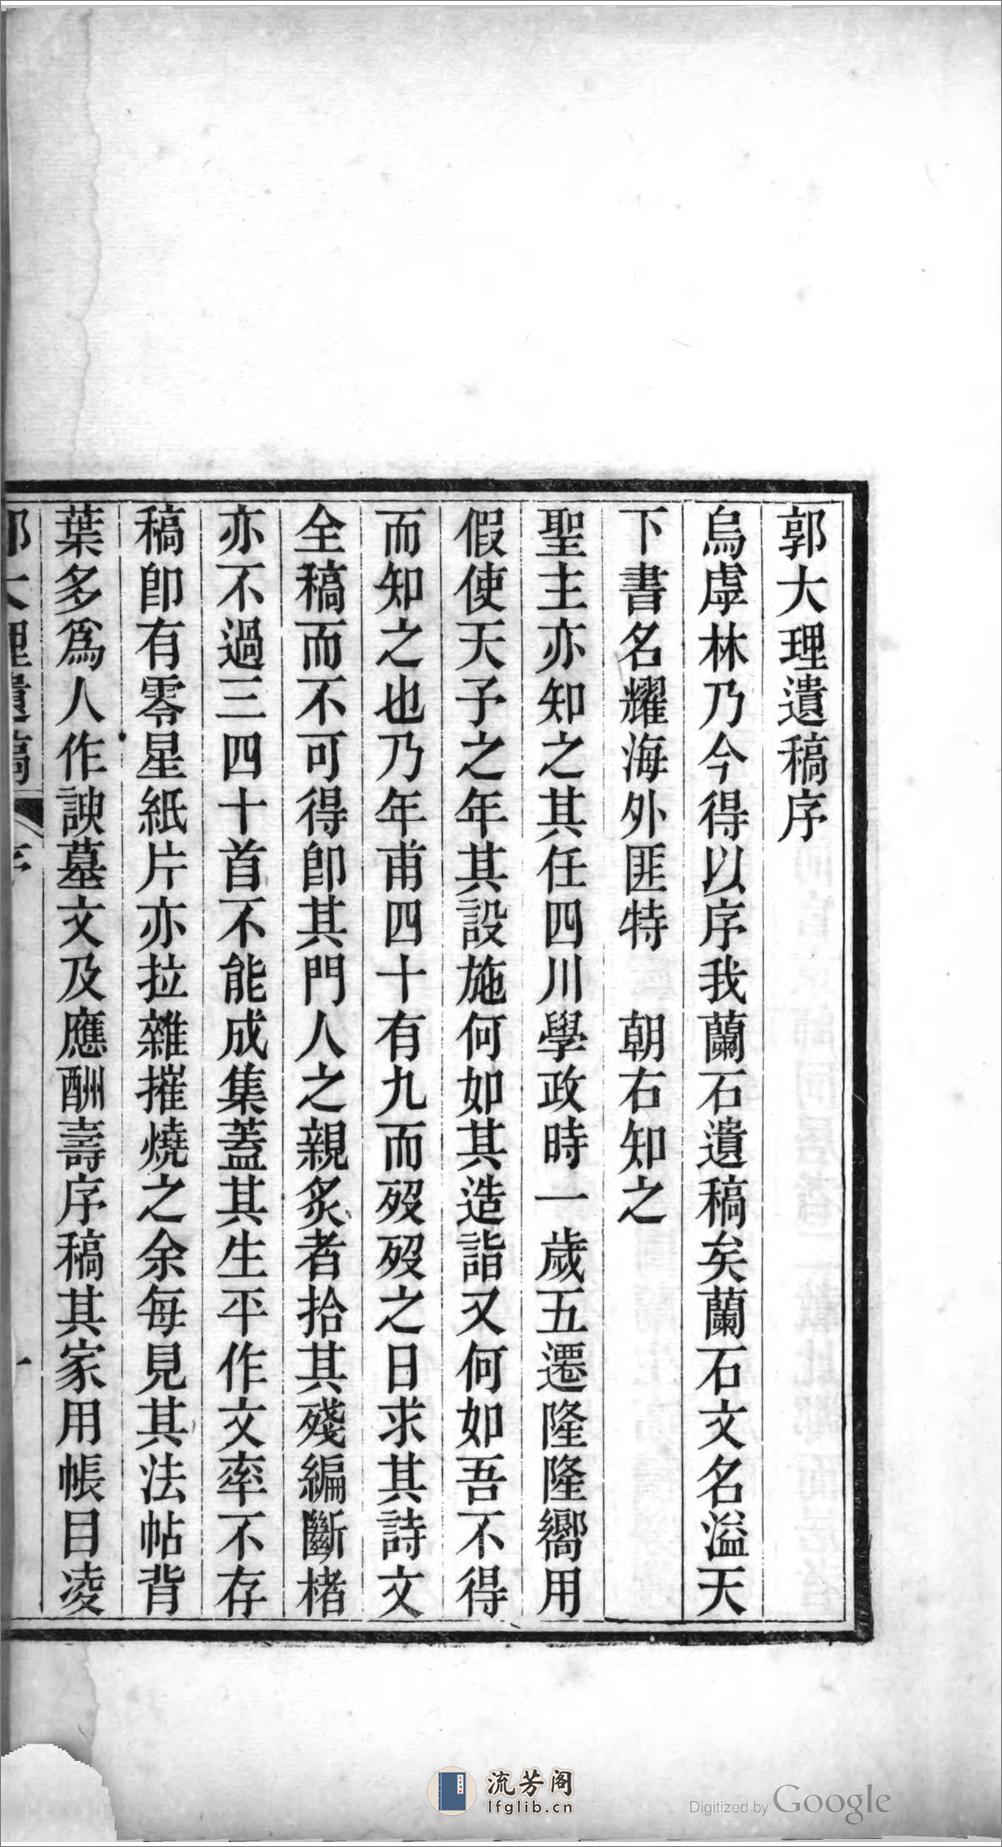 郭大理遺稿序
烏虖林乃今得以序我蘭石遺稿矣蘭石文名溢天
下書名耀海外匪特　朝右知之
聖主亦知之其任四川學政時一歲五遷隆隆嚮用
假使天子之年其設施何如其造詣又何如吾不得
而知之也乃年甫四十有九而歿歿之日求其詩文
全稿而不可得卽其門人之親炙者拾其殘編斷楮
亦不過三四十首不能成集蓋其生平作文率不存
稿卽有零星紙片亦拉雜摧燒之余每見其法帖背
葉多爲人作諛墓文及應酬壽序稿其家用帳目凌
郭大理遺稿　序　一
流芳阁
lfglib.cn
Digitized by Google